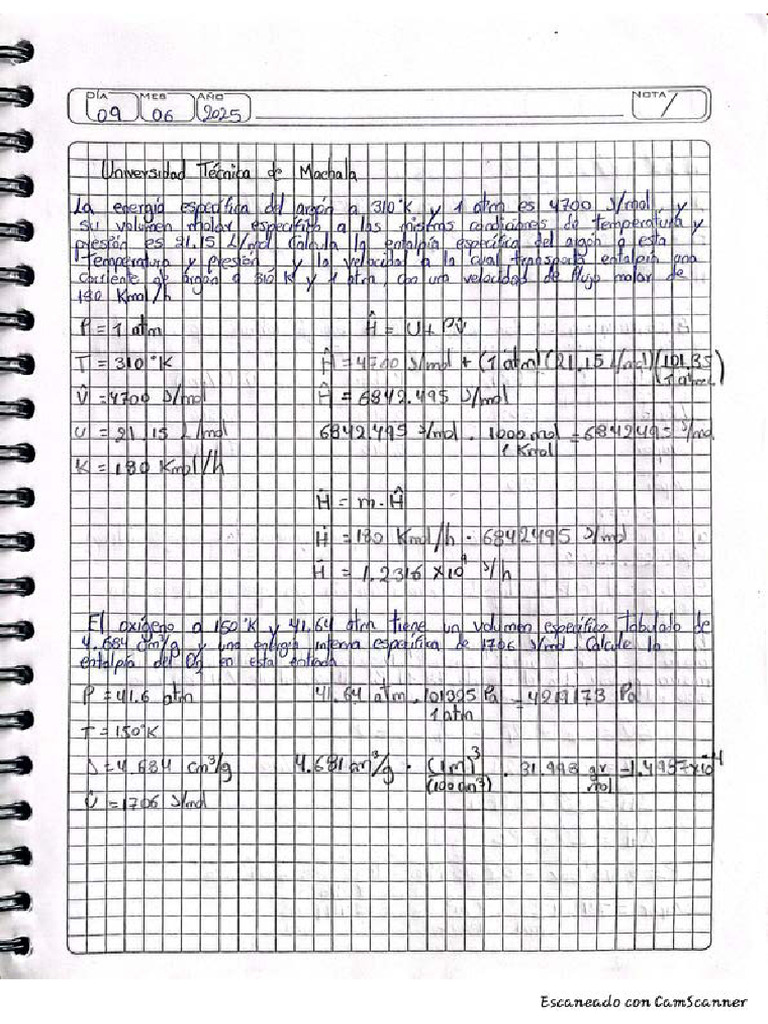 DÍA MES AÑO NOTA
09 06 2025
Universidad Técnica de Machala
La energía específica del argón a 310°K y 1 atm es 4700 J/mol, y
su volumen molar específico a las mismas condiciones de temperatura y
presión es 21.15 L/mol Calcula la entalpía específica del argón a esta
temperatura y presión y la velocidad a la cual transporta entalpía una
corriente de argón a 310 K y 1 atm, con una velocidad de flujo molar de
180 Kmol/h
P = 1 atm Ĥ = U + PV̂
T = 310°K Ĥ = 4700 J/mol + (1 atm)(21,15 L/mol)(101.35)
V̂ = 4700 J/mol Ĥ = 6842.495 J/mol
u = 21,15 L/mol 6842.495 J/mol . 1000 mol = 6842495 J/mol
1 Kmol
K = 180 Kmol/h
Ḣ = m . Ĥ
Ḣ = 180 Kmol/h . 6842495 J/mol
Ḣ = 1.2316 x10⁹ J/h
El oxígeno a 150°K y 41,64 atm tiene un volumen específico tabulado de
4.684 cm³/g y una energía interna específica de 1706 J/mol. Calcule la
entalpía del O2 en esta entrada
P = 41.6 atm 41.64 atm . 101325 Pa = 4219173 Pa
1 atm
T = 150°K
= 4.684 cm³/g 4.681 cm³/g . (1m)³ . 31.998 gr = 1.4987x10⁻⁴
(100cm³) mol
Û = 1706 J/mol
Escaneado con CamScanner